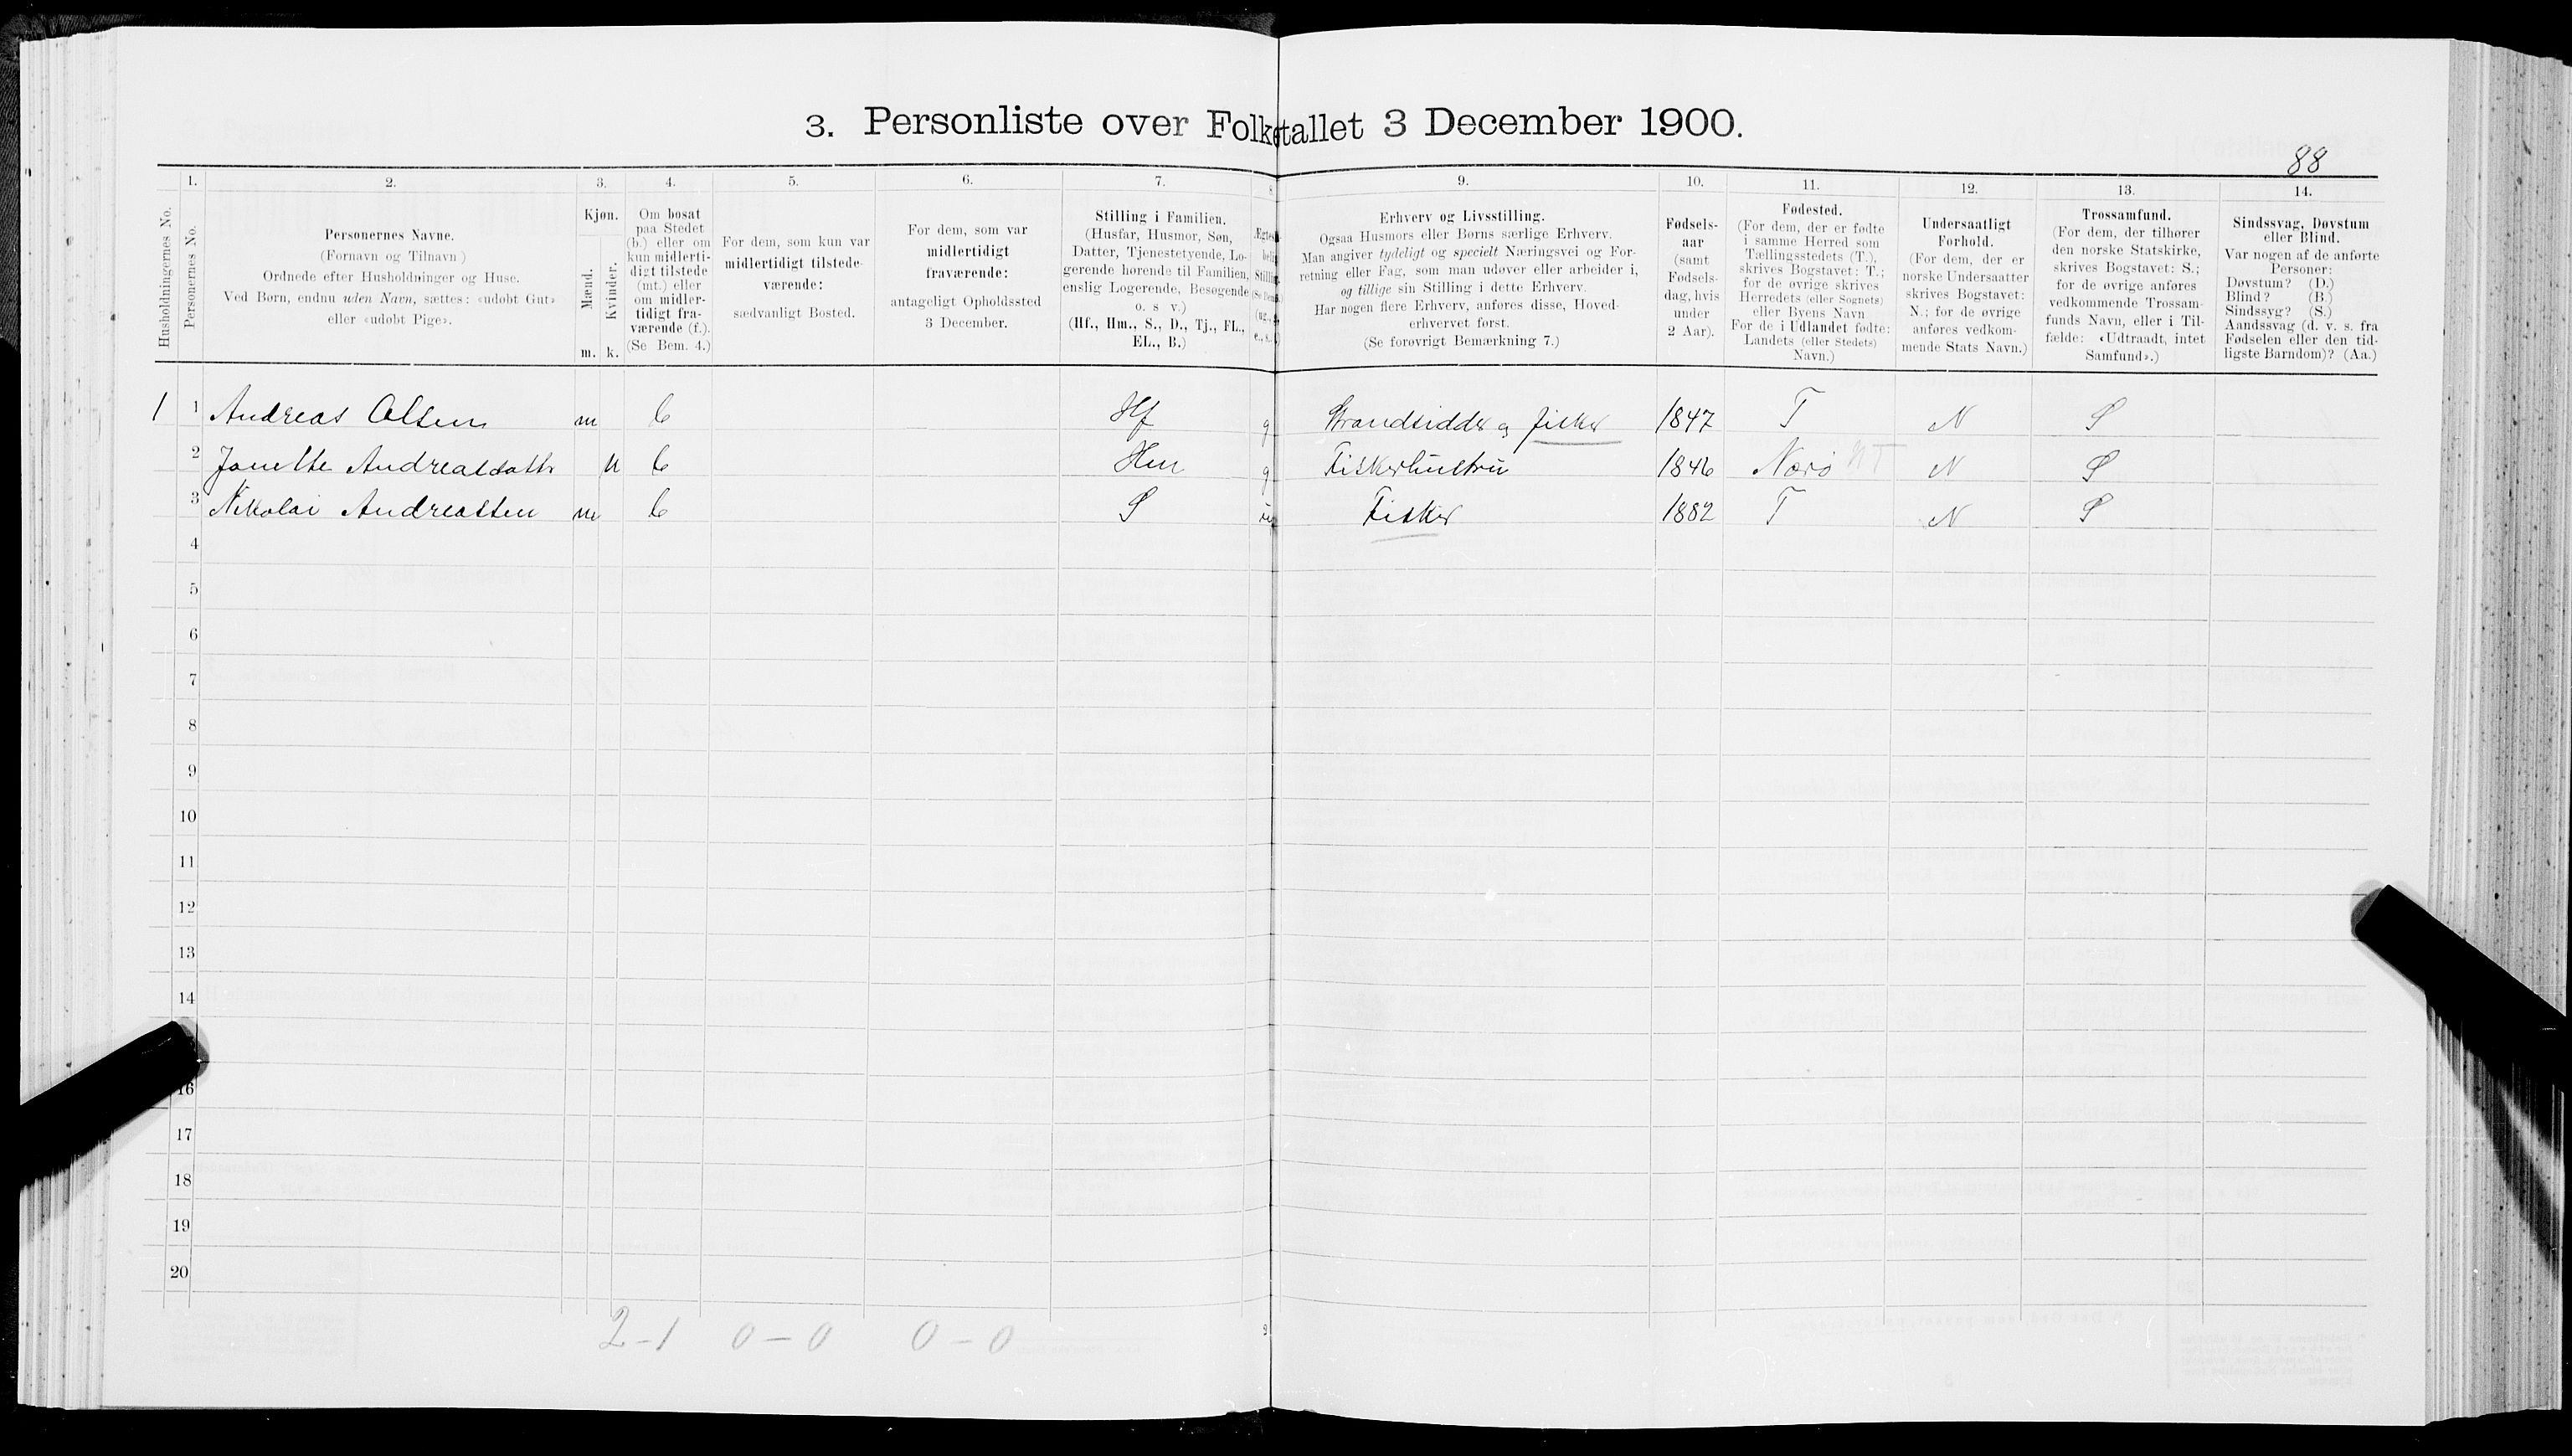 3. Personliste over Folketallet 3 December 1900.
88
1. 2. 3. 4. 5. 6. 7. 8 9. 10. 11. 12. 13. 14.
Husholdningernes No.
Personernes No.
Personernes Navne.
(Fornavn og Tilnavn)
Ordnede efter Husholdninger og Huse.
Ved Børn, endnu uden Navn, sættes: «udøbt Gut»
eller «udøbt Pige».
Kjøn.
Mænd.
Kvinder.
m. k.
Om bosat
paa Stedet
(b.) eller om
kun midlerti-
digt tilstede
(mt.) eller
om midler-
tidigt fra-
værende (f.).
(Se Bem. 4.)
For dem, som kun var
midlertidigt tilstede-
værende:
sædvanligt Bosted.
For dem, som var
midlertidigt
fraværende:
antageligt Opholdssted
3 December.
Stilling i Familien.
(Husfar, Husmor, Søn,
Datter, Tjenestetyende, Lo-
gerende hørende til Familien,
enslig Logerende, Besøgende
o. s v.)
(Hf., Hm., S., D., Tj., FL.,
EL., B.)
Erhverv og Livsstilling.
Ogsaa Husmors eller Børns særlige Erhverv.
Man angiver tydeligt og specielt Næringsvei og For-
retning eller Fag, som man udøver eller arbeider i,
og tillige sin Stilling i dette Erhverv.
Har nogen flere Erhverv, anføres disse, Hoved-
erhvervet først.
(Se forøvrigt Bemærkning 7.)
Fødsels-
aar
(samt
Fødsels-
dag, hvis
under
2 Aar).
Fødested.
(For dem, der er fødte
i samme Herred som
Tællingsstedets (T.),
skrives Bogstavet: T.;
for de øvrige skrives
Herredets (eller Sognets)
eller Byens Navn
For de i Udlandet fødte:
Landets (eller Stedets)
Navn.)
Undersaatligt
Forhold.
(For dem, der er
norske Undersaatter
skrives Bogstavet:
N.; for de øvrige
anføres vedkom-
mende Stats Navn.)
Trossamfund.
(For dem, der tilhører
den norske Statskirke,
skrives Bogstavet: S.;
for de øvrige anføres
vedkommende Trossam-
funds Navn, eller i Til-
fælde: «Udtraadt, intet
Samfund».)
Sindssvag, Døvstum
eller Blind.
Var nogen af de anførte
Personer:
Døvstum? (D.)
Blind? (B.)
Sindssyg? (S.)
Aandssvag (d. v. s. fra
Fødselen eller den tid-
ligste Barndom)? (Aa.)
1 1 Andreas Olsen m b Hf g Strandsidder og fisker 1847 T N S
2 Janette Andreasdattr k b Hm g Fiskerhustru 1846 Nærø NT N S
3 Nikolai Andreassen m b S ug Fisker 1882 T N S
4
5
6
7
8
9
10
11
12
13
14
16
17
18
19
20
2-1 0-0 0-0